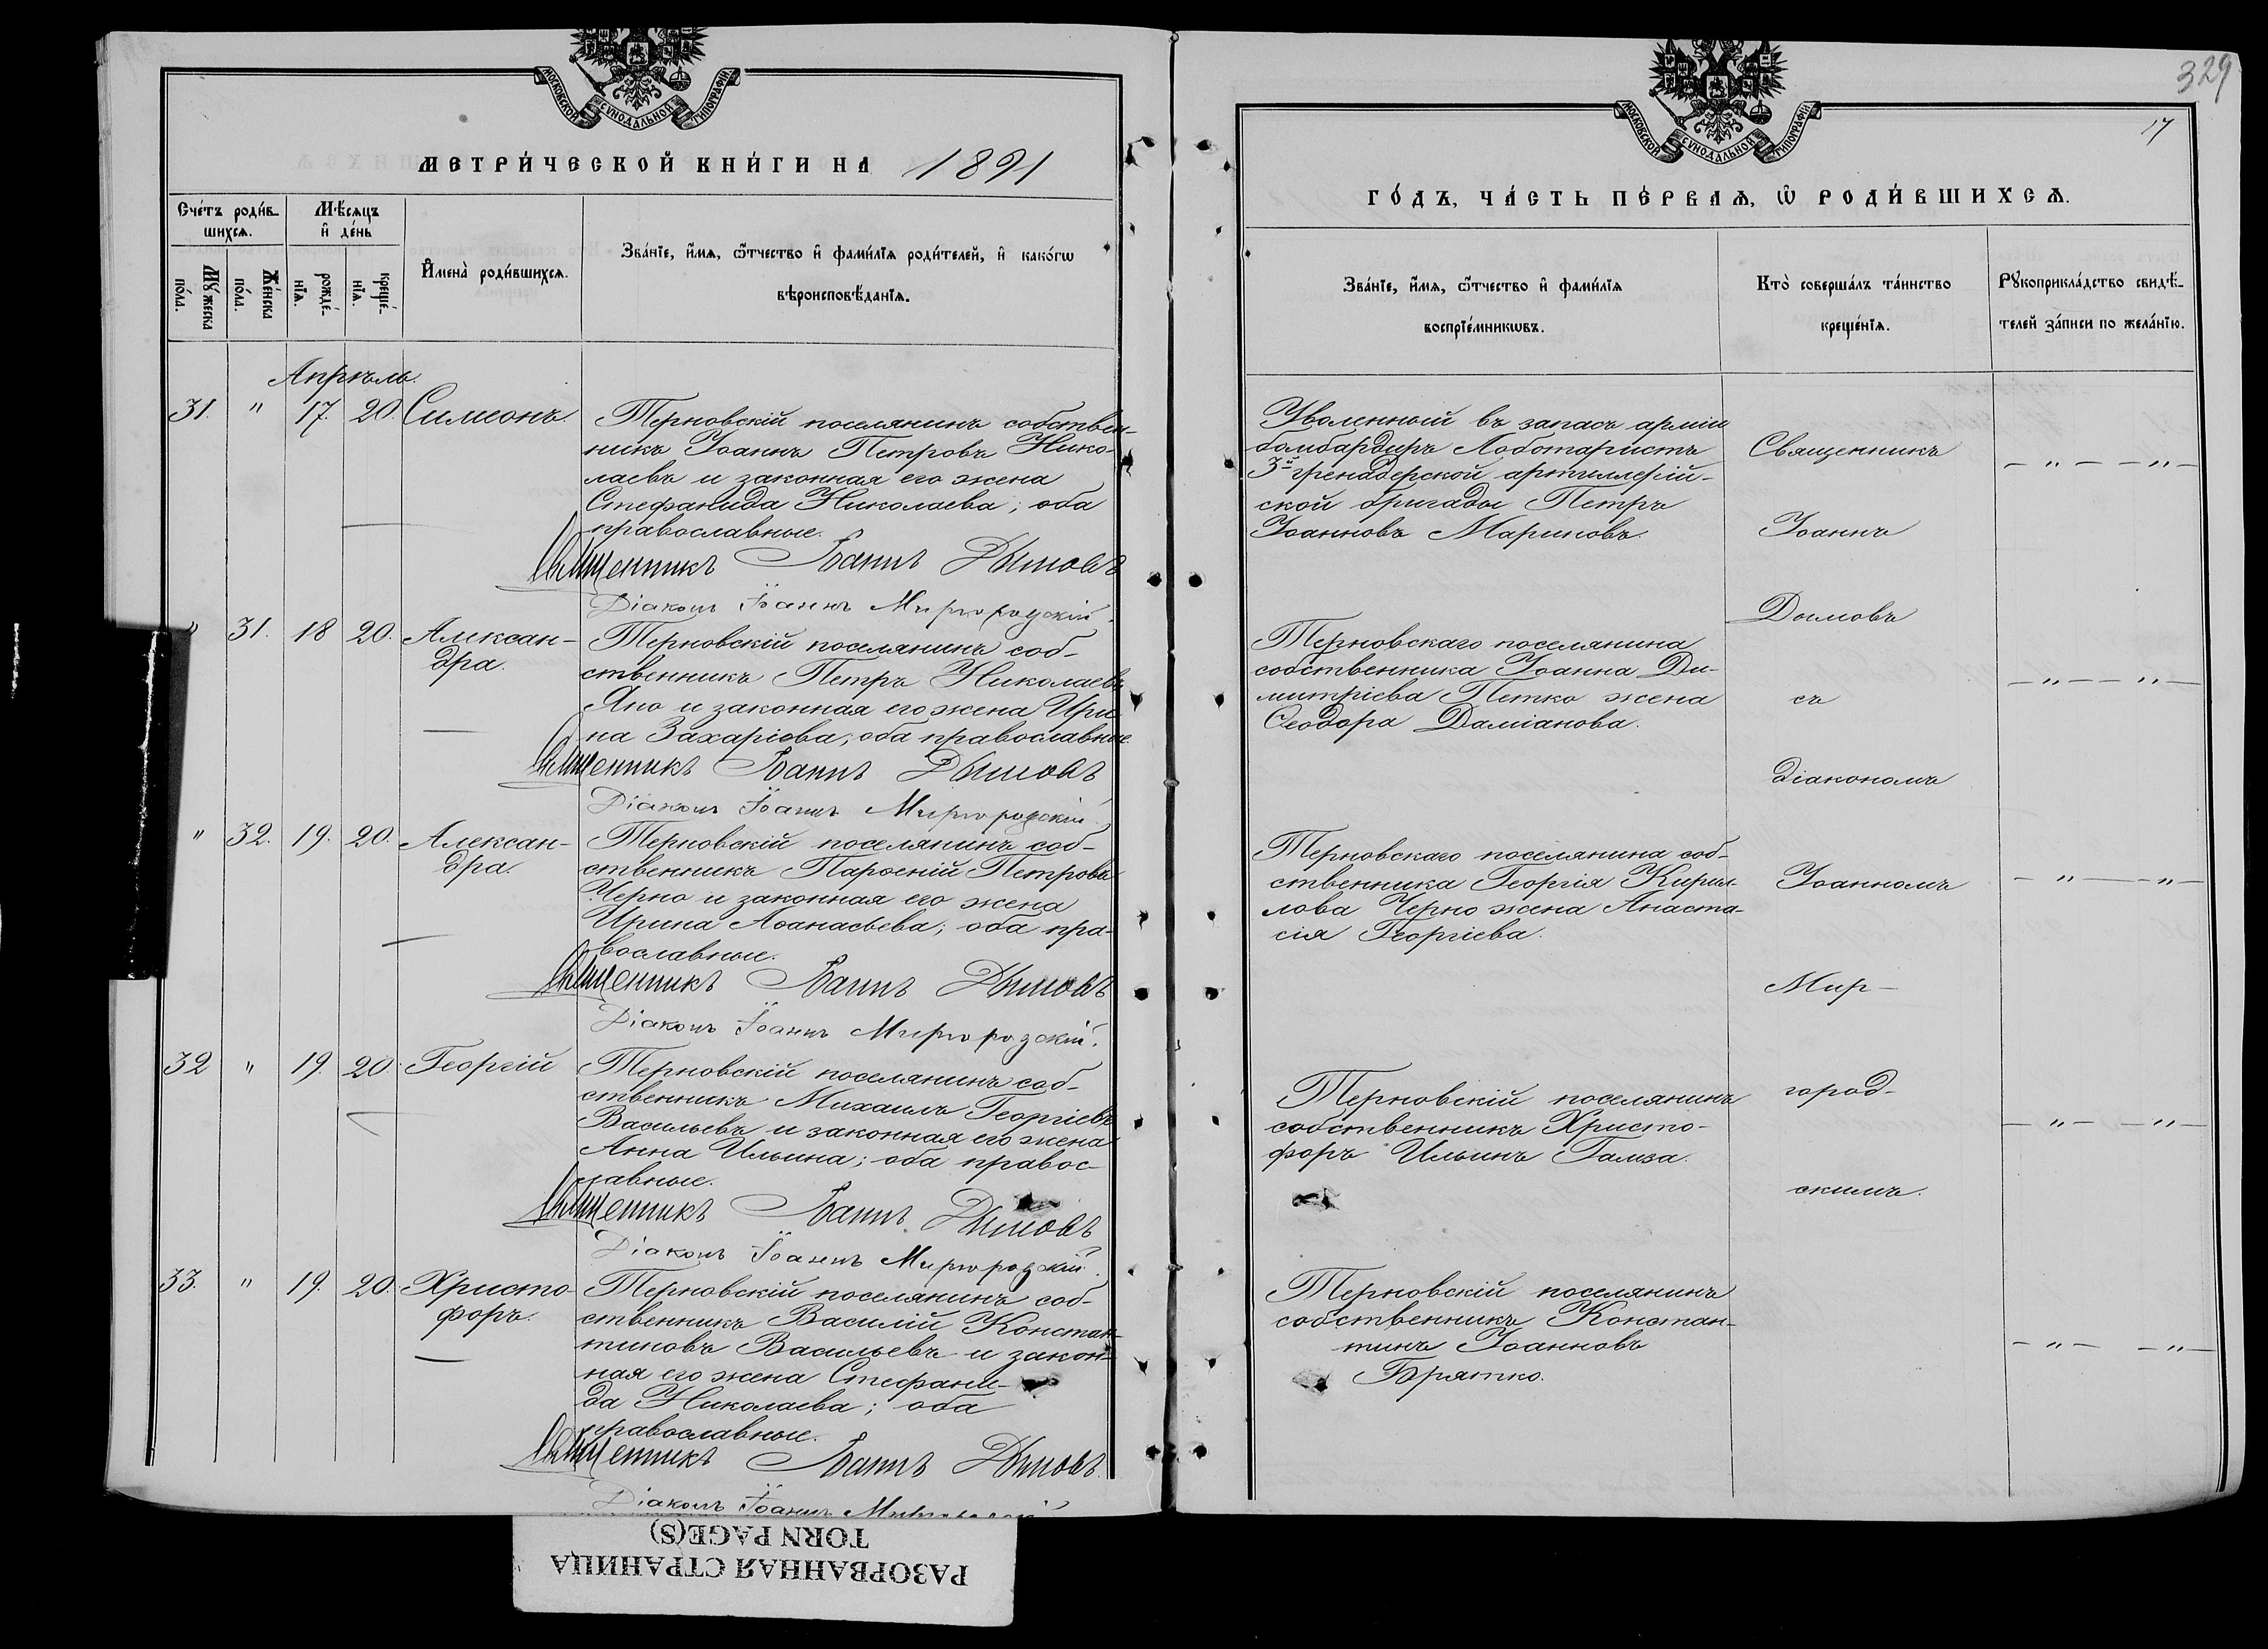 МОСКОВСКОЙ СѴНОДАЛЬНОЙ ТИПОГРАФІИ
МЕТРИ́ЧЕСКОЙ КНИ́ГИ НА 1891
Сче́тъ роди́в-
шихсѧ.
Мѣ́сѧцъ
и҆ де́нь
Мꙋ́жеска
по́ла.
Же́нска
по́ла.
рожде́-
нїѧ.
креще́-
нїѧ.
И҆мена̀ роди́вшихсѧ.
Зва́нїе, и҆́мѧ, ѻ҆́тчество и҆ фами́лїѧ роди́телей, и҆ како́гѡ
вѣроисповѣ́данїѧ.
Апрѣль.
31. " 17. 20. Симеонъ.
Терновскій поселянинъ собствен-
никъ Іоаннъ Петровъ Нико-
лаевъ и законная его жена
Стефанида Николаева; оба
православные.
Священникъ Іоаннъ Дымовъ
Діаконъ Іоаннъ Миргородскій.
" 31. 18 20. Алексан-
дра.
Терновскій поселянинъ соб-
ственникъ Петръ Николаевъ
Яно и законная его жена Ири-
на Захаріева; оба православные.
Священникъ Іоаннъ Дымовъ
Діаконъ Іоаннъ Миргородскій.
" 32. 19. 20. Алексан-
дра.
Терновскій поселянинъ соб-
ственникъ Парѳеній Петровъ
Черно и законная его жена
Ирина Аѳанасьева; оба пра-
вославные.
Священникъ Іоаннъ Дымовъ
Діаконъ Іоаннъ Миргородскій.
32 " 19. 20. Георгій
Терновскій поселянинъ соб-
ственникъ Михаилъ Георгіевъ
Васильевъ и законная его жена
Анна Ильина; оба правос-
лавные.
Священникъ Іоаннъ Дымовъ
Діаконъ Іоаннъ Миргородскій.
33. " 19. 20. Христо-
форъ.
Терновскій поселянинъ соб-
ственникъ Василій Констан-
тиновъ Васильевъ и закон-
ная его жена Стефани-
да Николаева; оба
православные.
Священникъ Іоаннъ Дымовъ.
Діаконъ Іоаннъ Миргородскій
РАЗОРВАННАЯ СТРАНИЦА
TORN PAGE(S)
329
17
МОСКОВСКОЙ СѴНОДАЛЬНОЙ ТИПОГРАФІИ
ГО́ДЪ, ЧА́СТЬ ПЕ́РВАѦ, Ѡ҆ РОДИ́ВШИХСѦ.
Зва́нїе, и҆́мѧ, ѻ҆́тчество и҆ фами́лїѧ
воспрїе́мникѡвъ.
Кто̀ соверша́лъ та́инство
креще́нїѧ.
Рꙋкоприкла́дство свидѣ́-
телей за́писи по жела́нїю.
Уволенный въ запасъ арміи
бомбардиръ Лаботаристъ
3й гренадерской артиллерій-
ской бригады Петръ
Іоанновъ Мариновъ.
Терновскаго поселянина
собственника Іоанна Ди-
митріева Петко жена
Ѳеодора Даміанова.
Терновскаго поселянина соб-
ственника Георгія Кирил-
лова Черно жена Анаста-
сія Георгіева.
Терновскій поселянинъ
собственникъ Христо-
форъ Ильинъ Гамза.
Терновскій поселянинъ
собственникъ Констан-
тинъ Іоанновъ
Братко.
Священникъ
Іоаннъ
Дымовъ
съ
діакономъ
Іоанномъ
Мир-
город-
скимъ.
— " — — " —
— " — — " —
— " — — " —
— " — — " —
— " — — " —